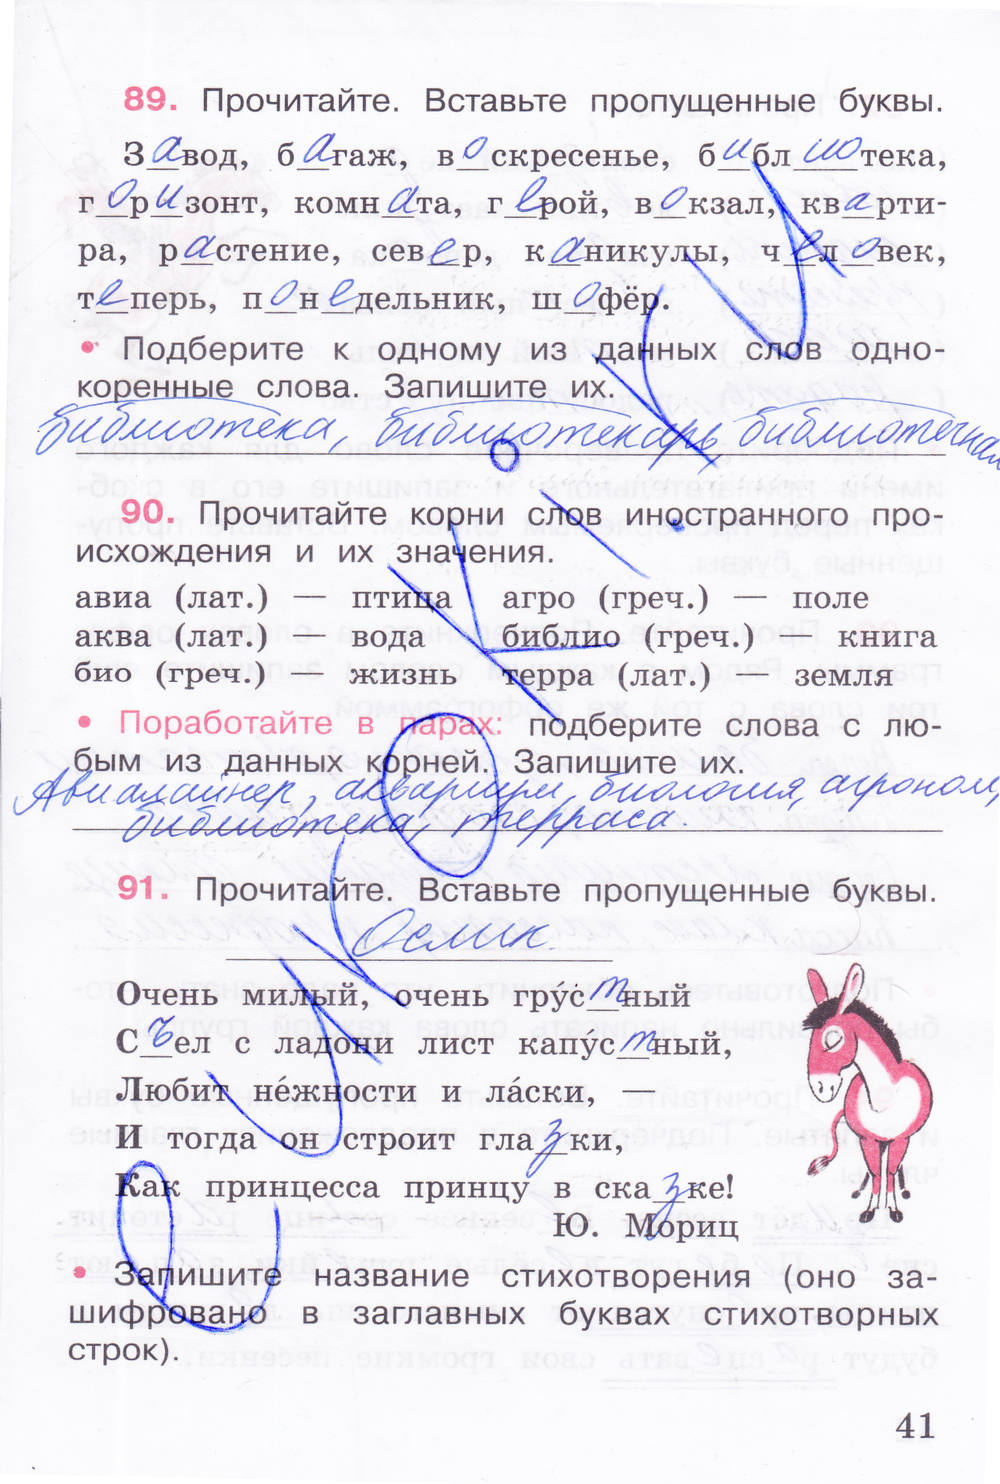 89. Прочитайте. Вставьте пропущенные буквы.
Завод, багаж, воскресенье, библиотека,
горизонт, комната, герой, вокзал, кварти-
ра, растение, север, каникулы, человек,
теперь, понедельник, шофёр.
• Подберите к одному из данных слов одно-
коренные слова. Запишите их.
библиотека, библиотекарь, библиотечная
90. Прочитайте корни слов иностранного про-
исхождения и их значения.
авиа (лат.) — птица агро (греч.) — поле
аква (лат.) — вода библио (греч.) — книга
био (греч.) — жизнь терра (лат.) — земля
• Поработайте в парах: подберите слова с лю-
бым из данных корней. Запишите их.
Авиалайнер, аквариум, биология, агроном,
библиотека, терраса.
91. Прочитайте. Вставьте пропущенные буквы.
Ослик
Очень милый, очень грустный
Съел с ладони лист капустный,
Любит не́жности и ла́ски, —
И тогда он строит глазки,
Как принцесса принцу в сказке!
Ю. Мориц
• Запишите название стихотворения (оно за-
шифровано в заглавных буквах стихотворных
строк).
41